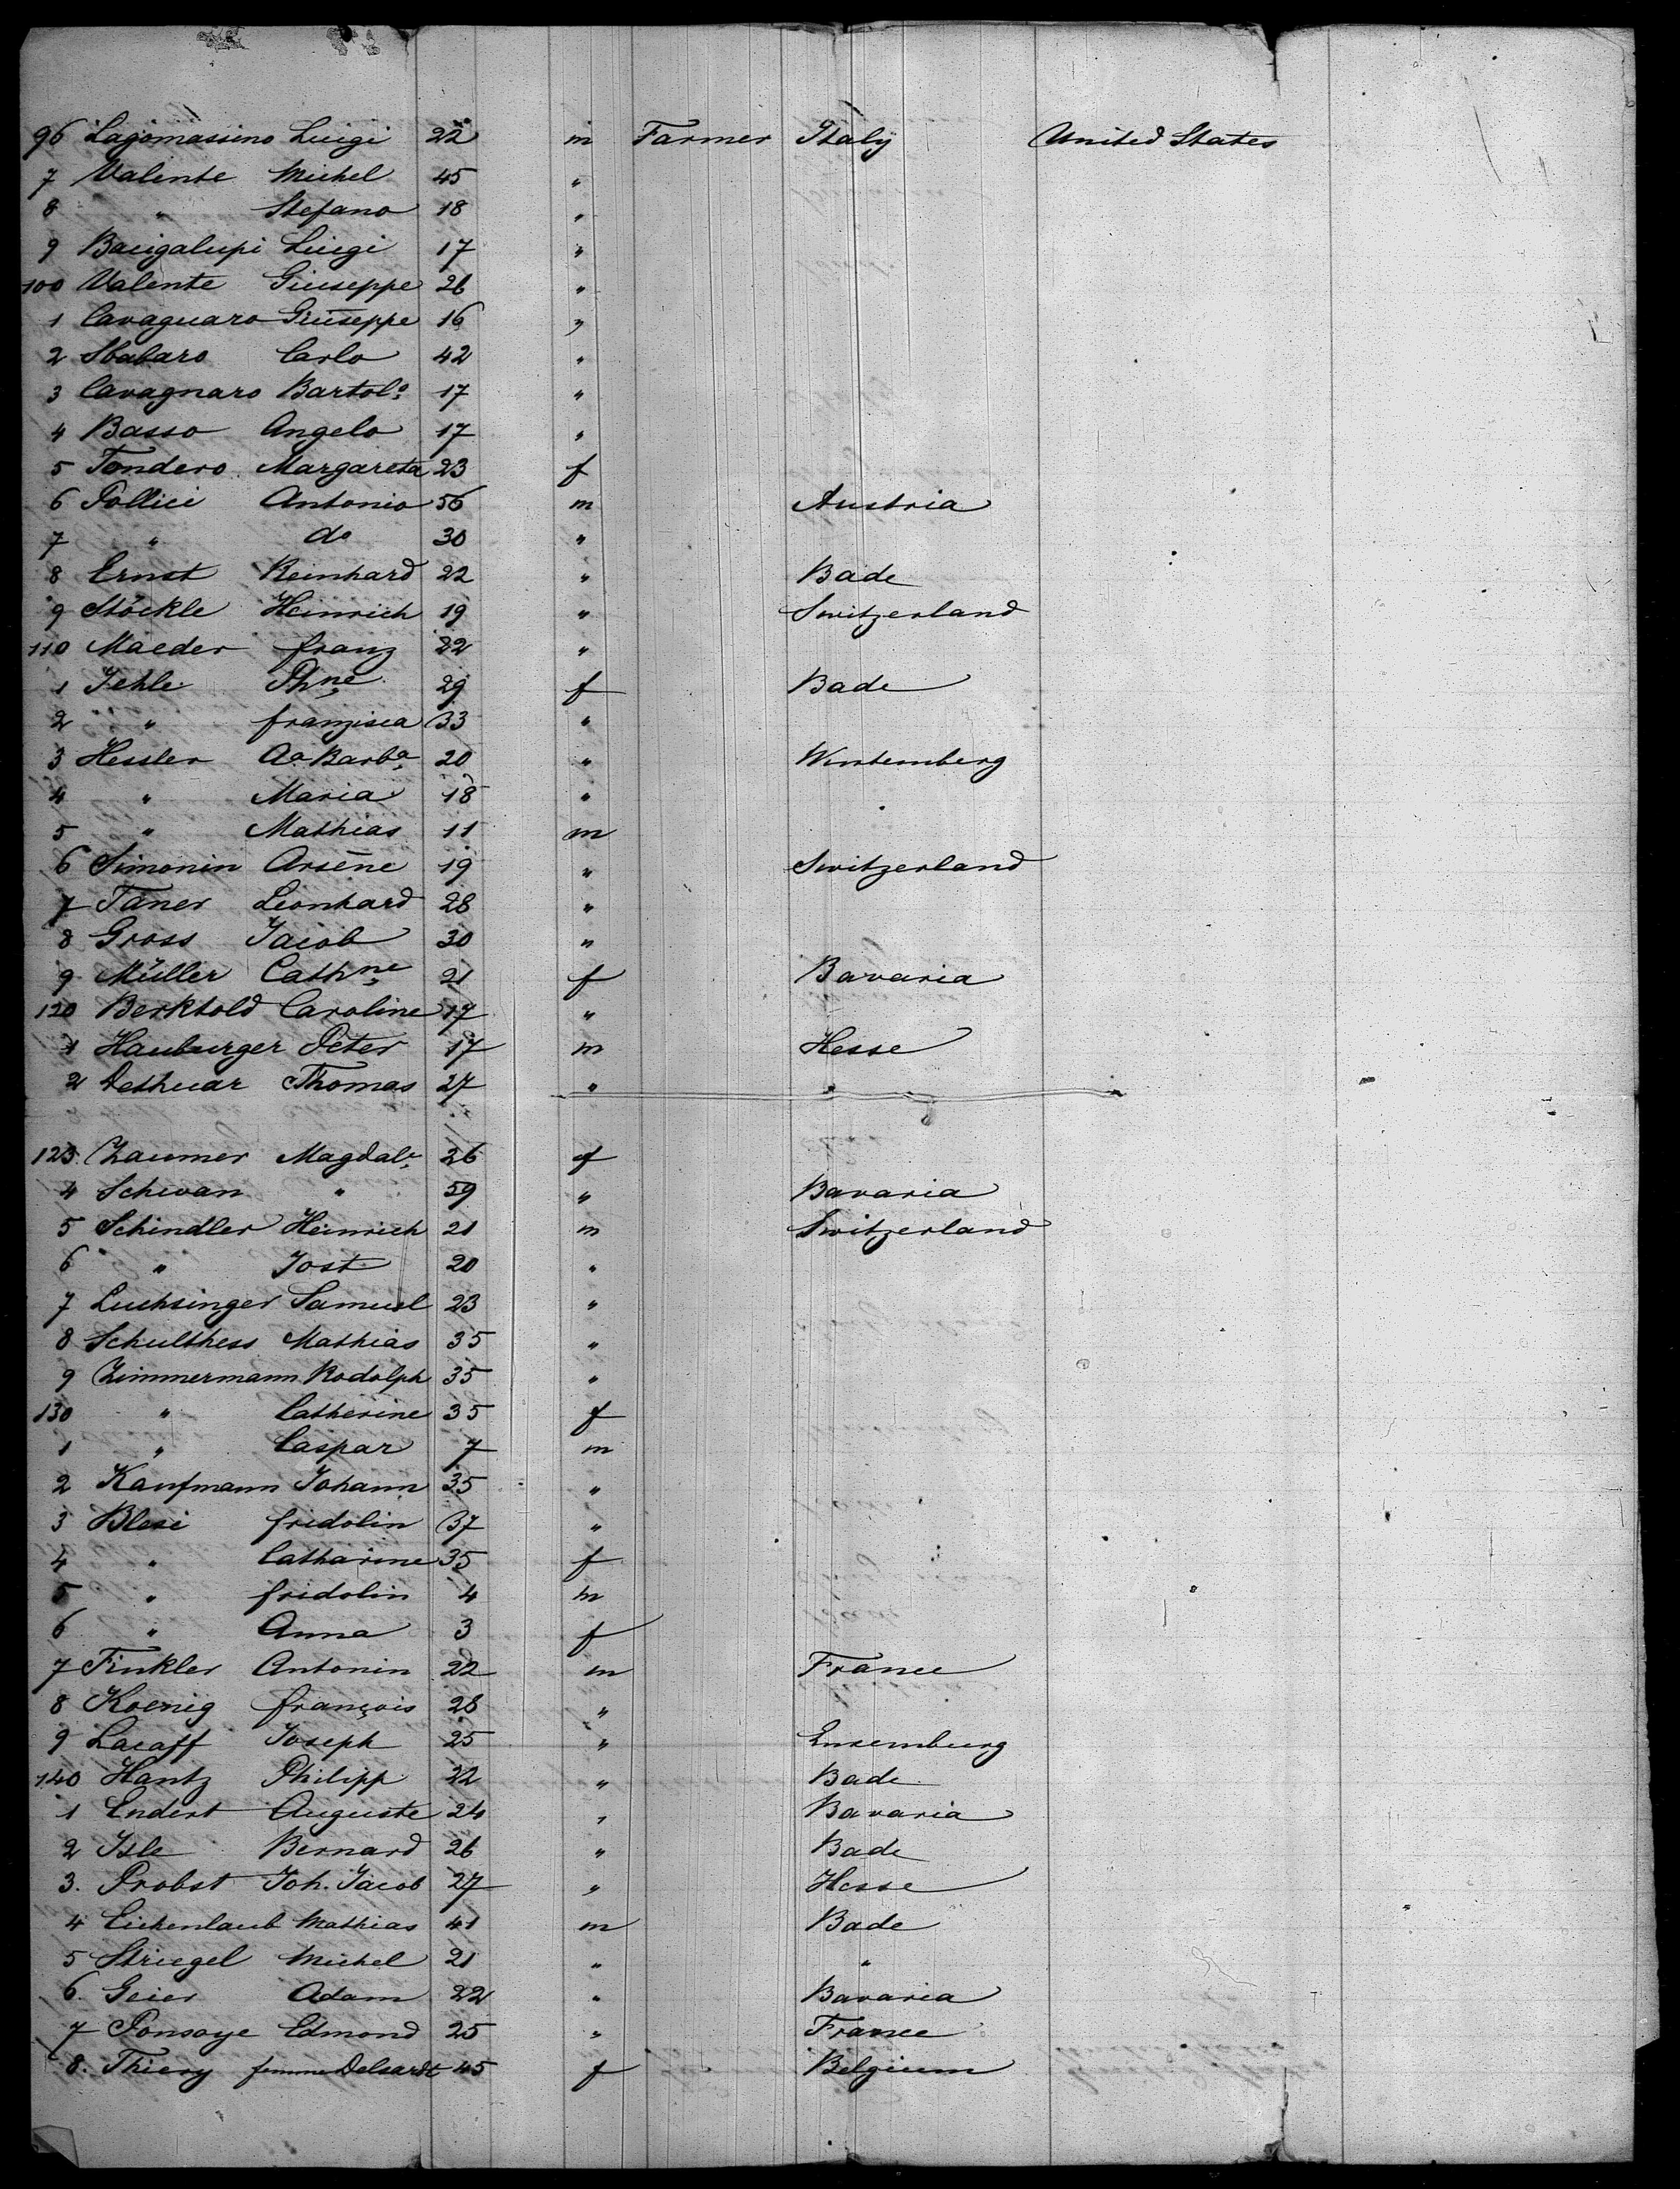 96 Lagomassino Luigi 22 m Farmer Italy United States
7 Valente Michel 45 "
8 " Stefano 18 "
9 Bacigalupi Luigi 17 "
100 Valente Giuseppe 26 "
1 Cavaguaro Giuseppe 16 "
2 Sbabaro Carlo 42 "
3 Cavagnaro Bartolo. 17 "
4 Basso Angelo 17 "
5 Tondero Margareta 23 f
6 Pollici Antonio 56 m Austria
7 " do 30 "
8 Ernst Reinhard 22 " Bade
9 Stöckle Heinrich 19 " Switzerland
110 Maeder franz 22 "
1 Jehle Phne. 29 f Bade
2 " franzisca 33 "
3 Hessler Aa Barba. 20 " Wurtemberg
4 " Maria 18 " "
5 " Mathias 11 m
6 Simonin Arsène 19 " Switzerland
7 Taner Leonhard 28 "
8 Gross Jacob 30 "
9 Müller Cathne. 21 f Bavaria
120 Berktold Caroline 17 "
1 Hauburger Peter 17 m Hesse
2 Dethuar Thomas 27 " "
123. Zaumer Magdale. 26 f
4 Schwan " 59 " Bavaria
5 Schindler Heinrich 21 m Switzerland
6 " Jost 20 "
7 Luchsinger Samuel 23 "
8 Schulthess Mathias 35 "
9 Zimmermann Rodolph 35 "
130 " Catherine 35 f
1 " Caspar 7 m
2 Kaufmann Johann 35 "
3 Blesi fridolin 37 "
4 " Catharine 35 f
5 " fridolin 4 m
6 " Anna 3 f
7 Finkler Antonin 22 m France
8 Koenig françois 28 "
9 Lacaff Joseph 25 " Luxemburg
140 Hantz Philipp 22 " Bade
1 Endert Auguste 24 " Bavaria
2 Isle Bernard 26 " Bade
3. Probst Joh. Jacob 27 " Hesse
4 Eichenlaub Mathias 41 m Bade
5 Striegel Michel 21 " "
6. Geier Adam 22 " Bavaria
7 Ponsaye Edmond 25 " France
8. Thiery femme Delsardt 45 f Belgium